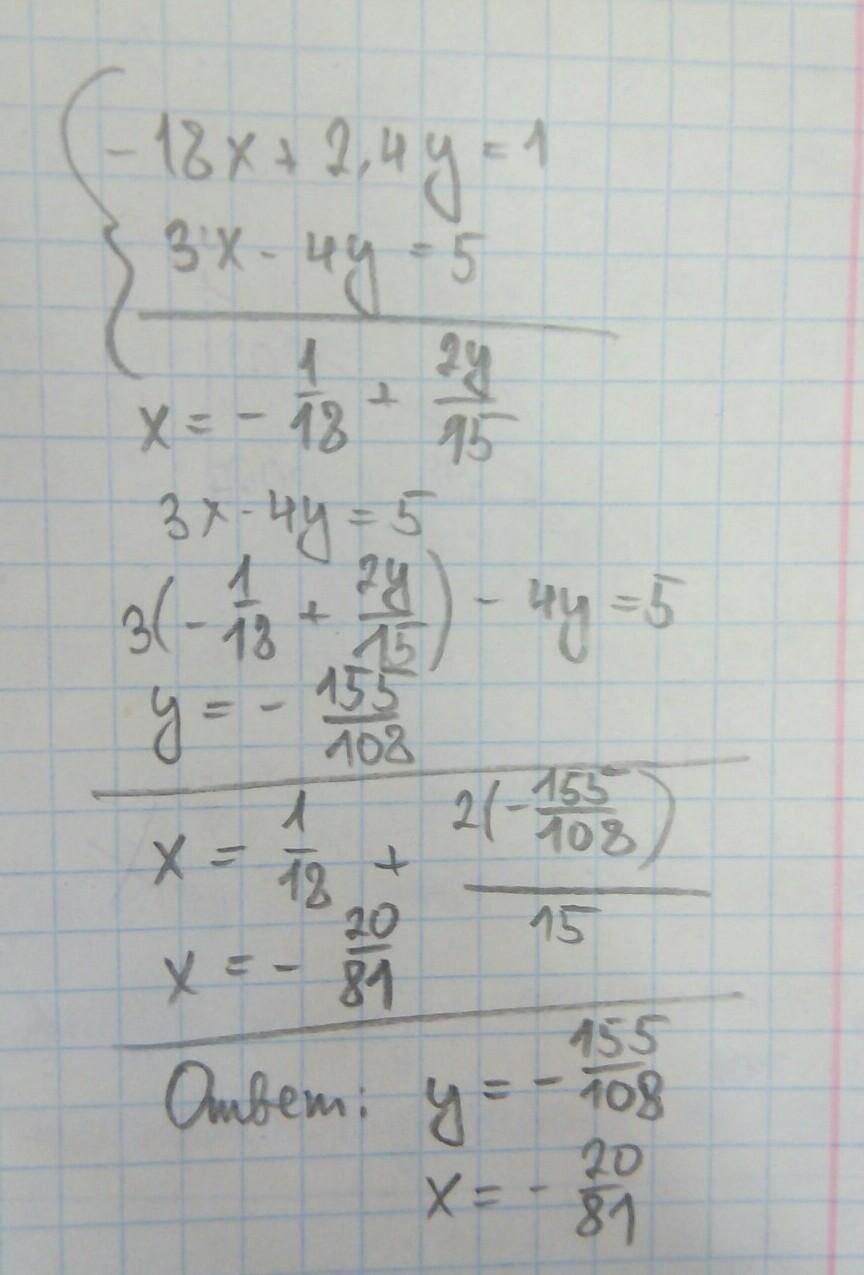 -18x + 2,4y = 1
3x - 4y = 5
x = - 1/18 + 2y/15
3x - 4y = 5
3(- 1/18 + 2y/15) - 4y = 5
y = - 155/108
x = 1/18 + 2(-155/108)/15
x = - 20/81
Ответ: y = - 155/108
x = - 20/81